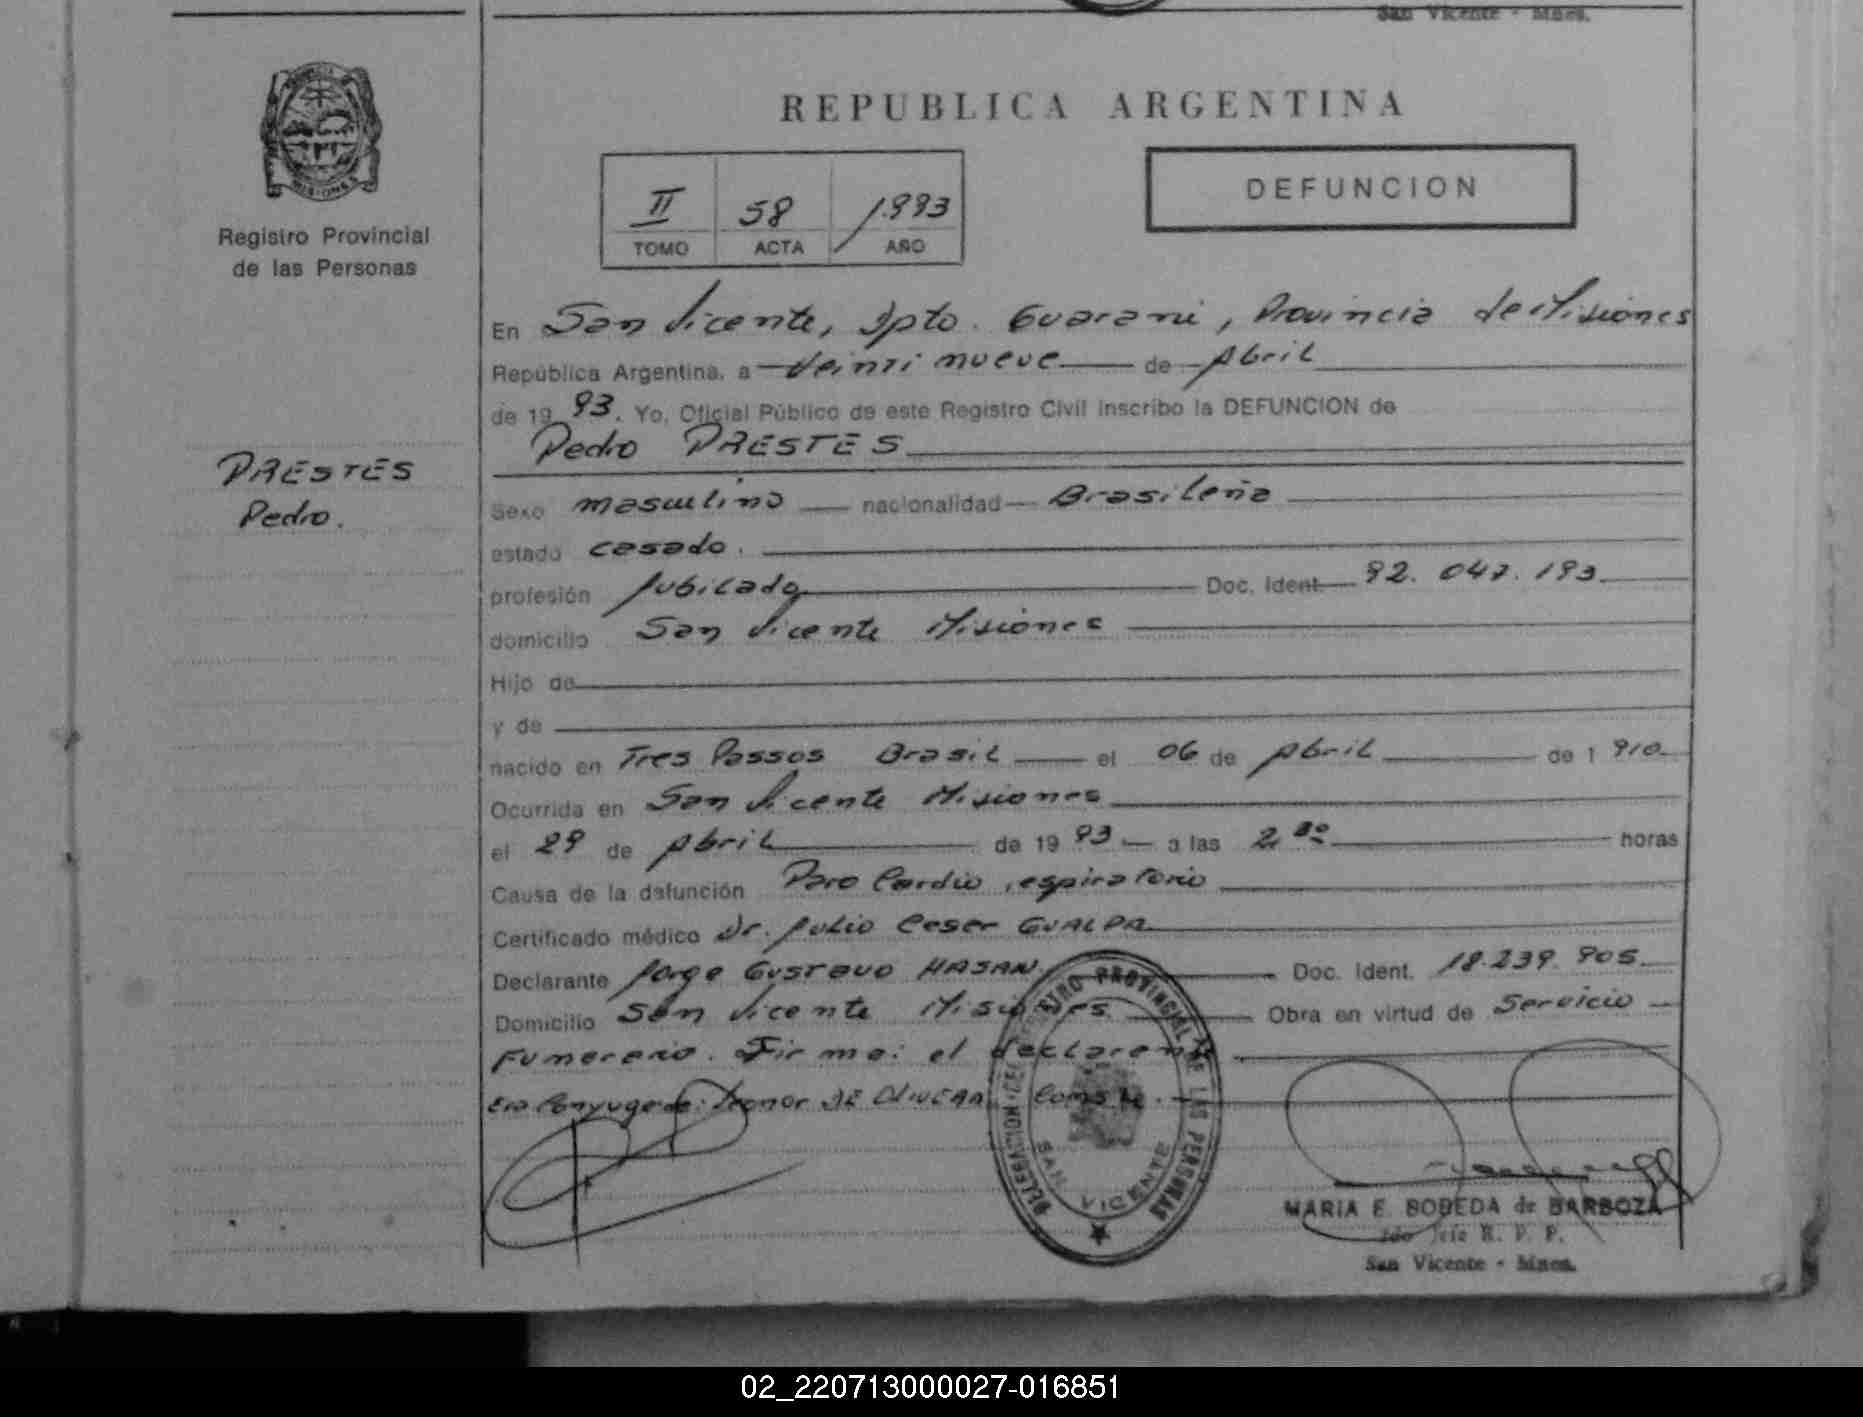 San Vicente - Mnes.
PROVINCIA DE
MISIONES
Registro Provincial
de las Personas
REPUBLICA ARGENTINA
II 58 1.993
TOMO ACTA AÑO
DEFUNCION
En San Vicente, Dpto. Guarani, Provincia de Misiones
República Argentina, a veinti nueve de Abril
de 19 93. Yo, Oficial Público de este Registro Civil inscribo la DEFUNCION de
Pedro PRESTES
PRESTES
Pedro.
Sexo masculino nacionalidad Brasileña
estado casado.
profesión Jubilado Doc. Ident. 92.047.193
domicilio San Vicente Misiones
Hijo de
y de
nacido en Tres Passos Brasil el 06 de Abril de 1 910
Ocurrida en San Vicente Misiones
el 29 de Abril de 19 93 a las 2 30 horas
Causa de la defunción Paro Cardio respiratorio
Certificado médico Dr. Julio Cesar GUALPA
Declarante Jorge Gustavo HASAN Doc. Ident. 18.239.905
Domicilio San Vicente Misiones Obra en virtud de Servicio
Funerario. Firma: el declarante
Era Conyuge de: Leonor DE OLIVERA Conste.
DELEGACION DEL REGISTRO PROVINCIAL DE LAS PERSONAS
SAN VICENTE
MARIA E. BOBEDA de BARBOZA
2do Jefe R. P. P.
San Vicente - Mnes.
02_220713000027-016851